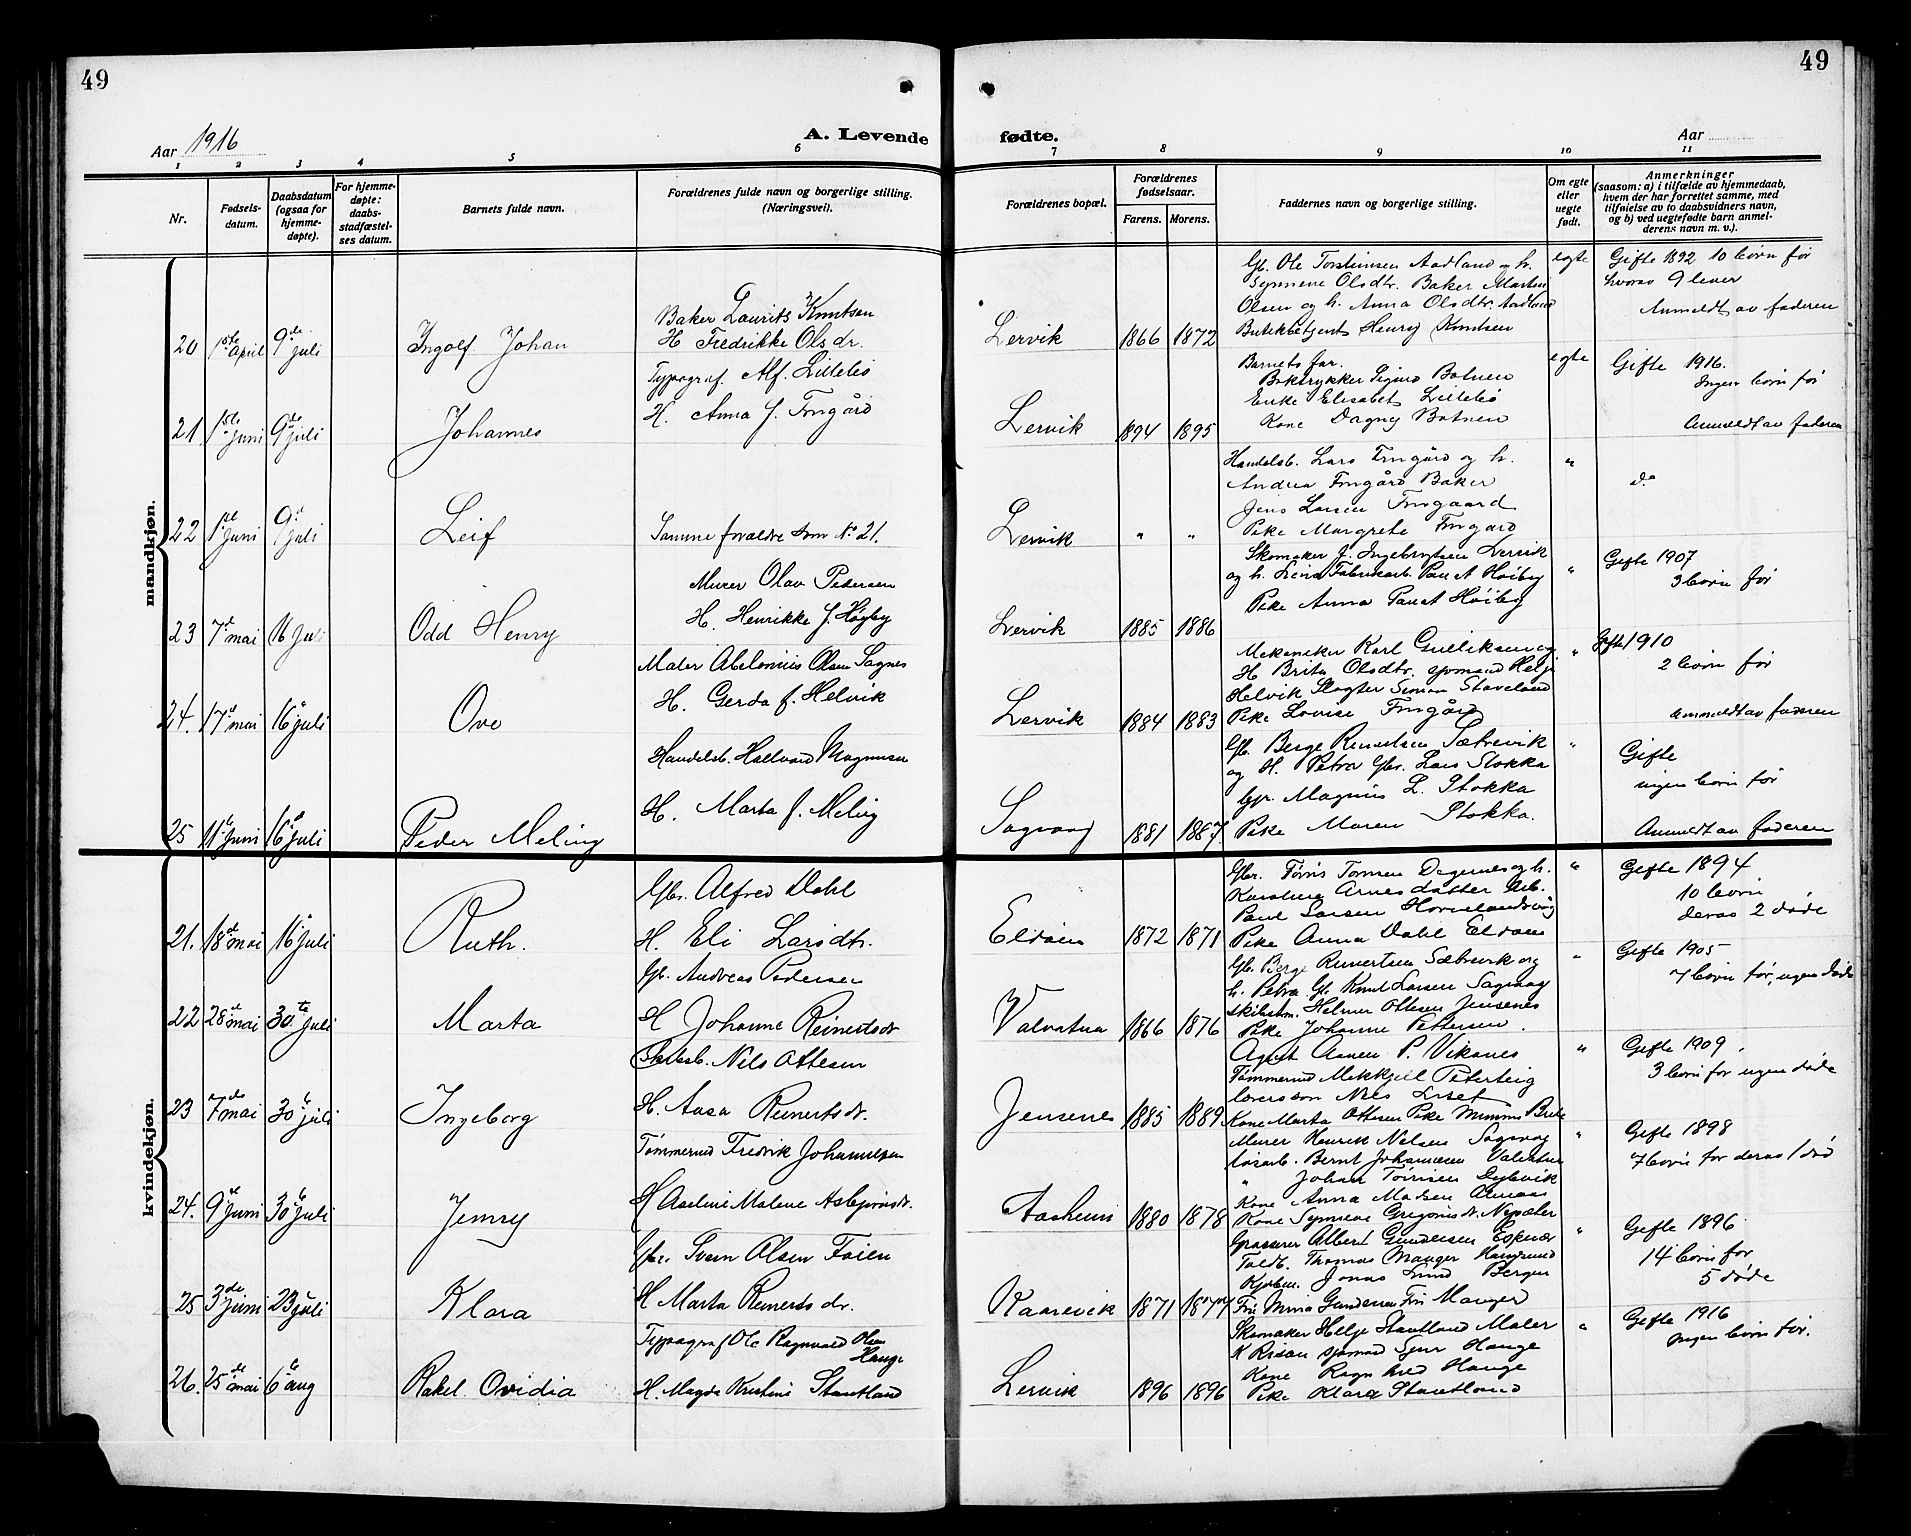 49
49
Aar 1916
A. Levende
fødte.
Aar
1 2 3 4 5 6 7 8 9 10 11
Nr.
Fødsels-
datum.
Daabsdatum
(ogsaa for
hjemme-
døpte).
For hjemme-
døpte:
daabs-
stadfæstel-
ses datum.
Barnets fulde navn.
Forældrenes fulde navn og borgerlige stilling.
(Næringsvei).
Forældrenes bopæl.
Forældrenes
fødselsaar.
Farens. Morens.
Faddernes navn og borgerlige stilling.
Om egte
eller
uegte
født.
Anmerkninger
(saasom: a) i tilfælde av hjemmedaab,
hvem der har forrettet samme, med
tilføielse av to daabsvidners navn,
og b) ved uegtefødte barn anmel-
derens navn m. v.).
mandkjøn.
20 1ste April 9de Juli Ingolf Johan
Baker Laurits Knutsen
H. Fredrikke Olsdr.
Lervik 1866 1872
Gb. Ole Torstinsen Aadland og h.
Synneve Olsdtr. Baker Martin
Olsen og h. Anna Olsdtr Aadland
Butikbetjent Henry Knutsen
egte
Gifte 1892 10 børn før
hvoraf 9 lever
Anmeldt av faderen
21 1ste Juni 9de Juli Johannes
Typograf. Alf. Lillebø
H. Anna f. Tungård
Lervik 1894 1895
Barnets far.
Boktrykker Sigurd Botnen
Enke Elisabet Lillebø
Kone Dagny Botnen
egte
Gifte 1916.
Ingen børn før
Anmeldt av faderen
22 1ste Juni 9de Juli Leif
Samme forældre som No 21.
Lervik " "
Handelsb. Lars Tungård og h.
Andrea Tungård Baker
Jens Larsen Tungaard
Pike Margrete Tungård
"
do
23 7de mai 16 Juli Odd Henry
Murer Olav Pedersen
H. Henrikke f. Høyby
Lervik 1885 1886
Skomaker J. Ingebrigtsen Lervik
og h. Lina Fabrikarb. Paul A Høiby
Pike Anna Paul A Høiby
"
Gifte 1907
3 børn før
24. 17de mai 16de Juli Ove
Maler Abelonius Olsen Sagnes
H. Gerda f. Helvik
Lervik 1884 1883
Mekaniker Karl Gulliksen og
H. Brita Olsdtr. sjømand Helje
Helvik Slagter Simon Staveland
Pike Lovise Tungård
"
Gifte 1910
2 børn før
Anmeldt av faderen
25 11te Juni 16de Juli Peder Meling
Handelsb. Hallvard Magnusen
H. Marta f. Meling
Sagvaag 1881 1887.
Gb. Berge Reinertsen Sætrevik
og H. Petra Gbr. Lars Stokka
Gr. Magnus L. Stokka
Pike Maren Stokka.
"
Gifte
ingen børn før
Anmeldt av faderen
kvindekjøn.
21. 18de mai 16de Juli Ruth.
Gbr. Alfred Dahl
H. Eli Larsdtr.
Eldøen 1872 1871
Gbr. Tønis Tonsen Dagernes og h.
Karoline Arnesdatter Arb.
Paul Larsen Hornelandsvåg
Pike Anna Dahl Eldøen
"
Gifte 1894
10 børn
deraf 2 døde
22 28de mai 30te Juli Marta
Gb. Andreas Pedersen
H. Johanne Reinertsdr
Valvatna 1866 1876
Gb. Berge Reinertsen Sætrevik og
h. Petra Gb. Knut Larsen Sagvaag
Skibstm. Helmer Ottesen Jensenes
Pike Johanne Pettersen.
"
Gifte 1905
7 børn før, ingen døde
23 7de mai 30te Juli Ingeborg
Nils Ottesen
H. Aasa Reinertsdr.
Jensenes 1885 1889
Agent Asmen P. Vikanes
Tømmermd Mekkjell Peterteig
Nils Liset
Kone Marta Ottesen Pike Mimmi Brekke
"
Gifte 1909.
3 børn før ingen døde
24. 9de Juni 30te Juli Jenny
Tømmermd Fredrik Johannesen
H Aseline Malene Asbjørnsdr.
Aasheim 1880 1878
Murer Henrik Nilsen Sagvag
løsarb. Bernt Johannesen Valvatna
" Johan Tørrisen Dybvik
Kone Anna Madsen
Kone Synneve Gregoriusdr.
"
Gifte 1898
7 børn før deraf 1 død
25 3de Juni 23 Juli Klara
Gbr. Svein Olsen Føien
H Marta Reinertsdr.
Kaarevik 1871 1877
Albert Gundersen Espevær
Toldb. Thomas Manger Haugesund
Kjøbm. Jonas Lund Bergen
Fru Mina Gundersen Fru Manger
"
Gifte 1896
14 børn før
5 døde
26. 25de mai 6te aug Rakel Ovidia
Typograf Ole Ragnvald Olsen
Hauge
H. Magda Kristine Stautland
Lervik 1896 1896
Skomaker Helje Stautland Maler
K Risøen sjømand Sjur Hauge
Kone Ragnhild Hauge
Pike Klara Stautland
"
Gifte 1916
Ingen børn før.